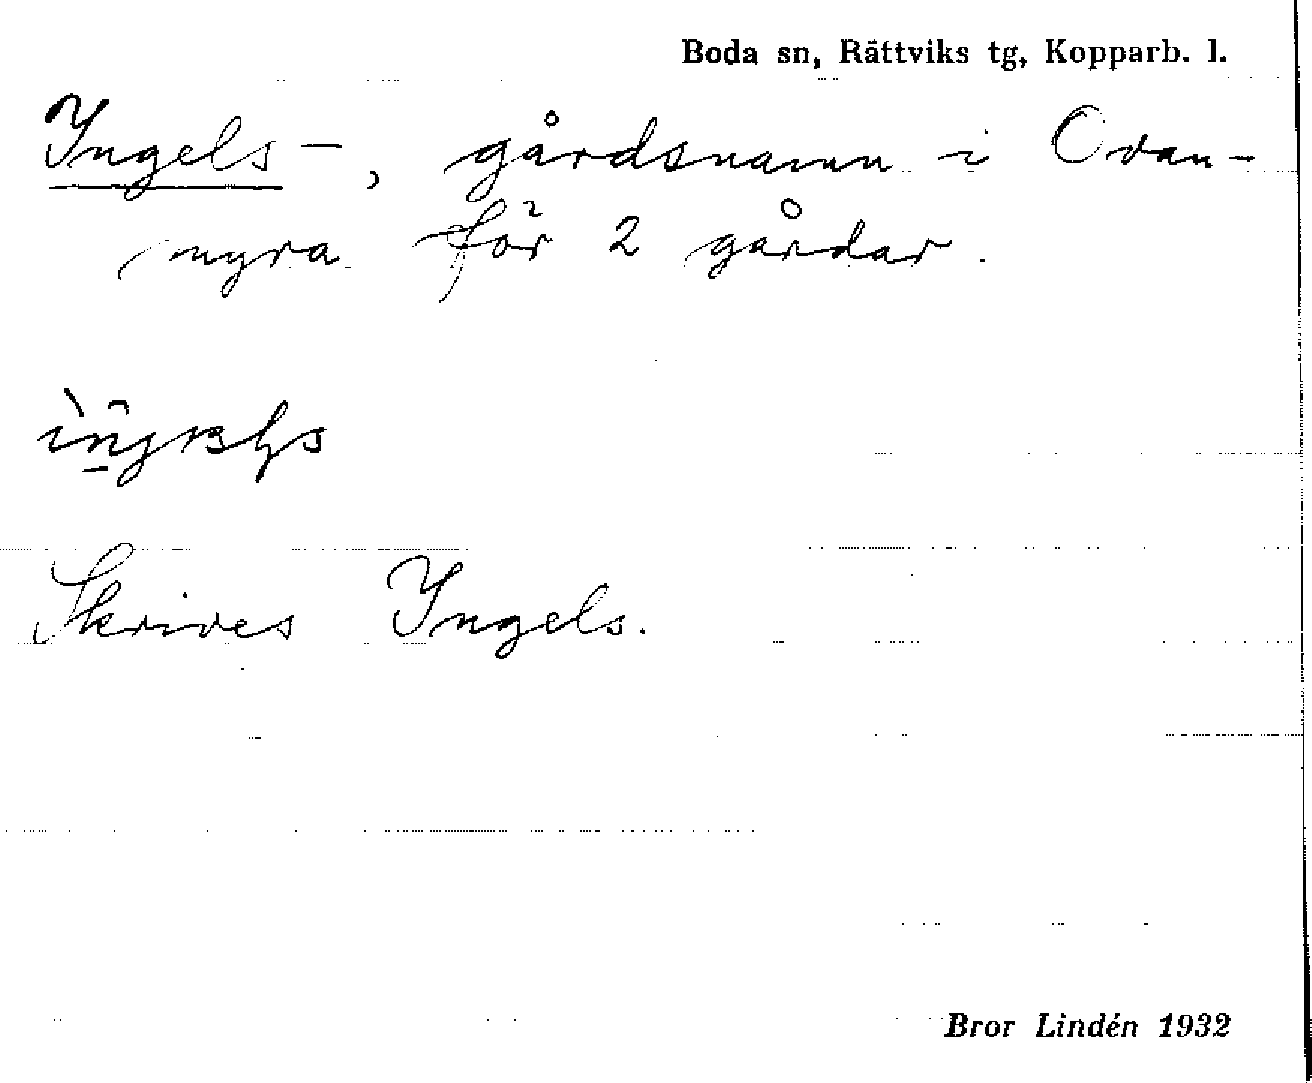 Boda sn, Rättviks tg, Kopparb. l.
Ingels-, gårdsnamn i Ovan-
myra för 2 gårdar.
Skrives Ingels.
Bror Lindén 1932